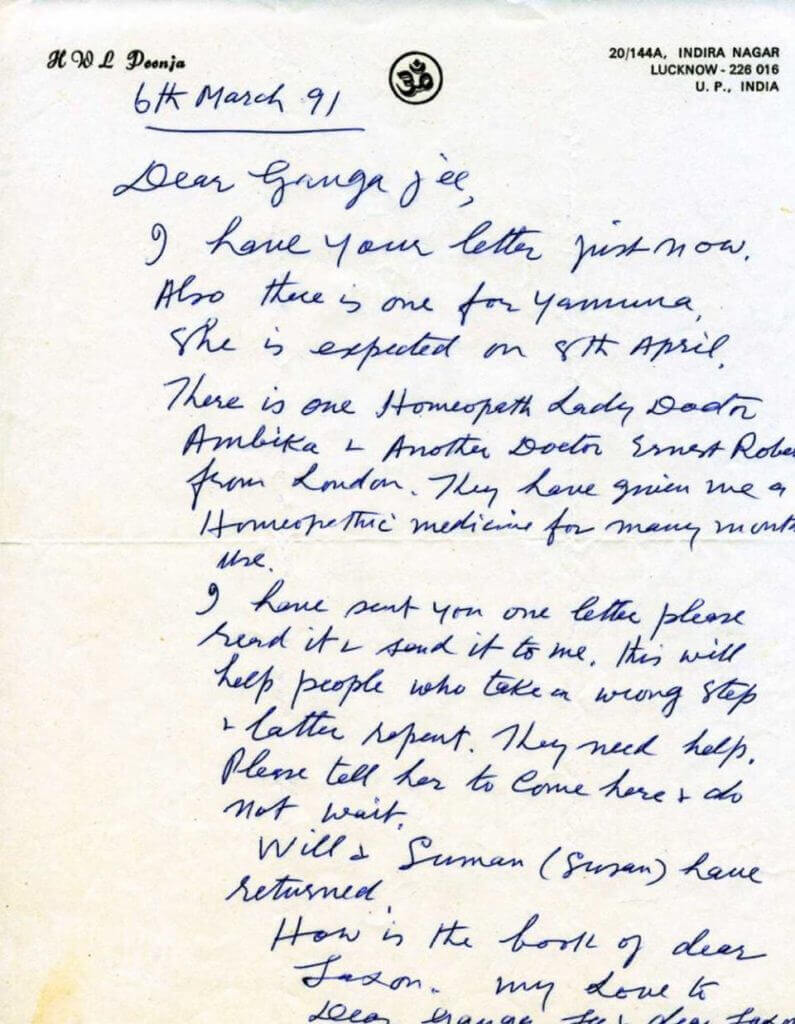 H W L Poonja
ॐ
20/144A, INDIRA NAGAR
LUCKNOW - 226 016
U. P., INDIA
6th March 91
Dear Ganga jee,
I have your letter just now.
Also there is one for Yamuna,
She is expected on 8th April.
There is one Homeopath Lady Doctor
Ambika & Another Doctor Ernest Rober
from London. They have given me a
Homeopathic medicine for many month
use.
I have sent you one letter please
read it & send it to me. This will
help people who take a wrong step
& latter repent. They need help.
Please tell her to Come here & do
not wait.
Will & Suman (Susan) have
returned.
How is the book of dear
Jaxon. My Love to
Dear Ganga Jee & dear Jaxon